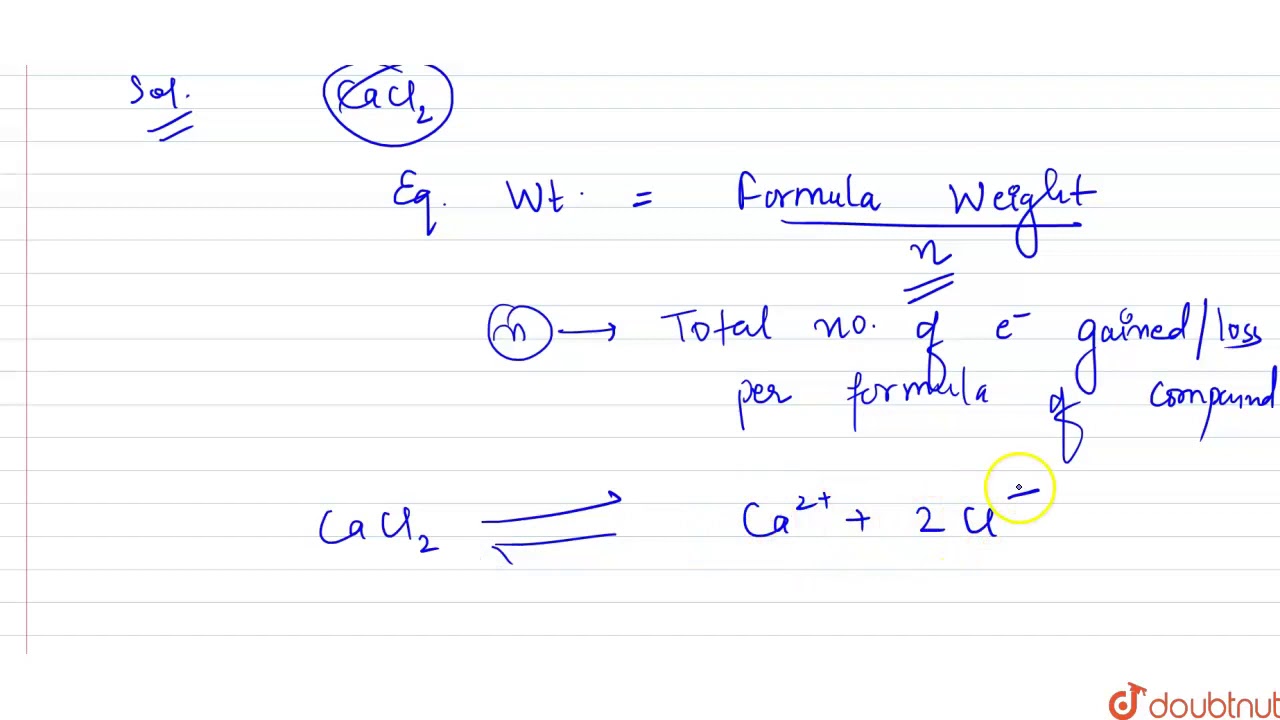 Sol. CaCl₂
Eq. Wt. = Formula Weight
n
n → Total no. of e⁻ gained/loss
per formula of compound
CaCl₂ ⇌ Ca²⁺ + 2Cl⁻
doubtnut